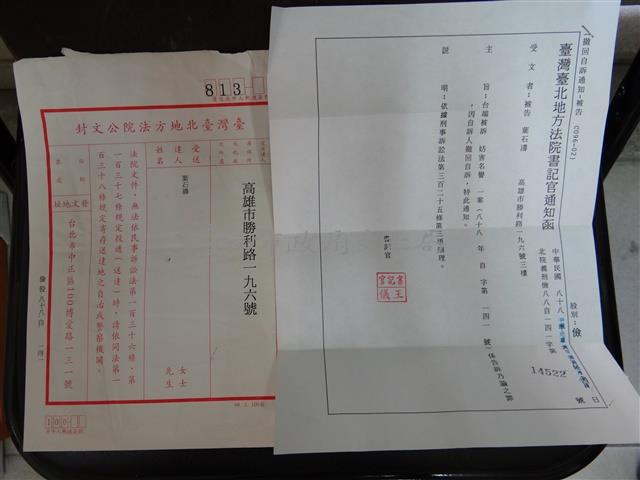 撤回自訴通知-被告 (096-02)
臺灣臺北地方法院書記官通知函
中華民國 八十八
北院義刑儉八八自一四一字第
14522
號
日
股別：儉
受文者：被告 葉石濤 高雄市勝利路一九六號三樓
主 旨：台端被訴 妨害名譽 一案(八十八 年 自 字第 一四一 號)係告訴乃論之罪
，因自訴人撤回自訴，特此通知。
說 明：依據刑事訴訟法第三百二十五條第三項辦理。
書記官
書記官
王儀
813-
臺灣臺北地方法院公文封
高雄市勝利路一九六號
受送達人姓名
葉石濤
女士
先生
法院文件，無法依民事訴訟法第一百三十六條、第
一百三十七條規定投遞(送達)時，請依同法第一
百三十八條規定寄存送達地之自治或警察機關。
發文地址
台北市中正區100博愛路一三一號
儉發八十八自 一四一
100-